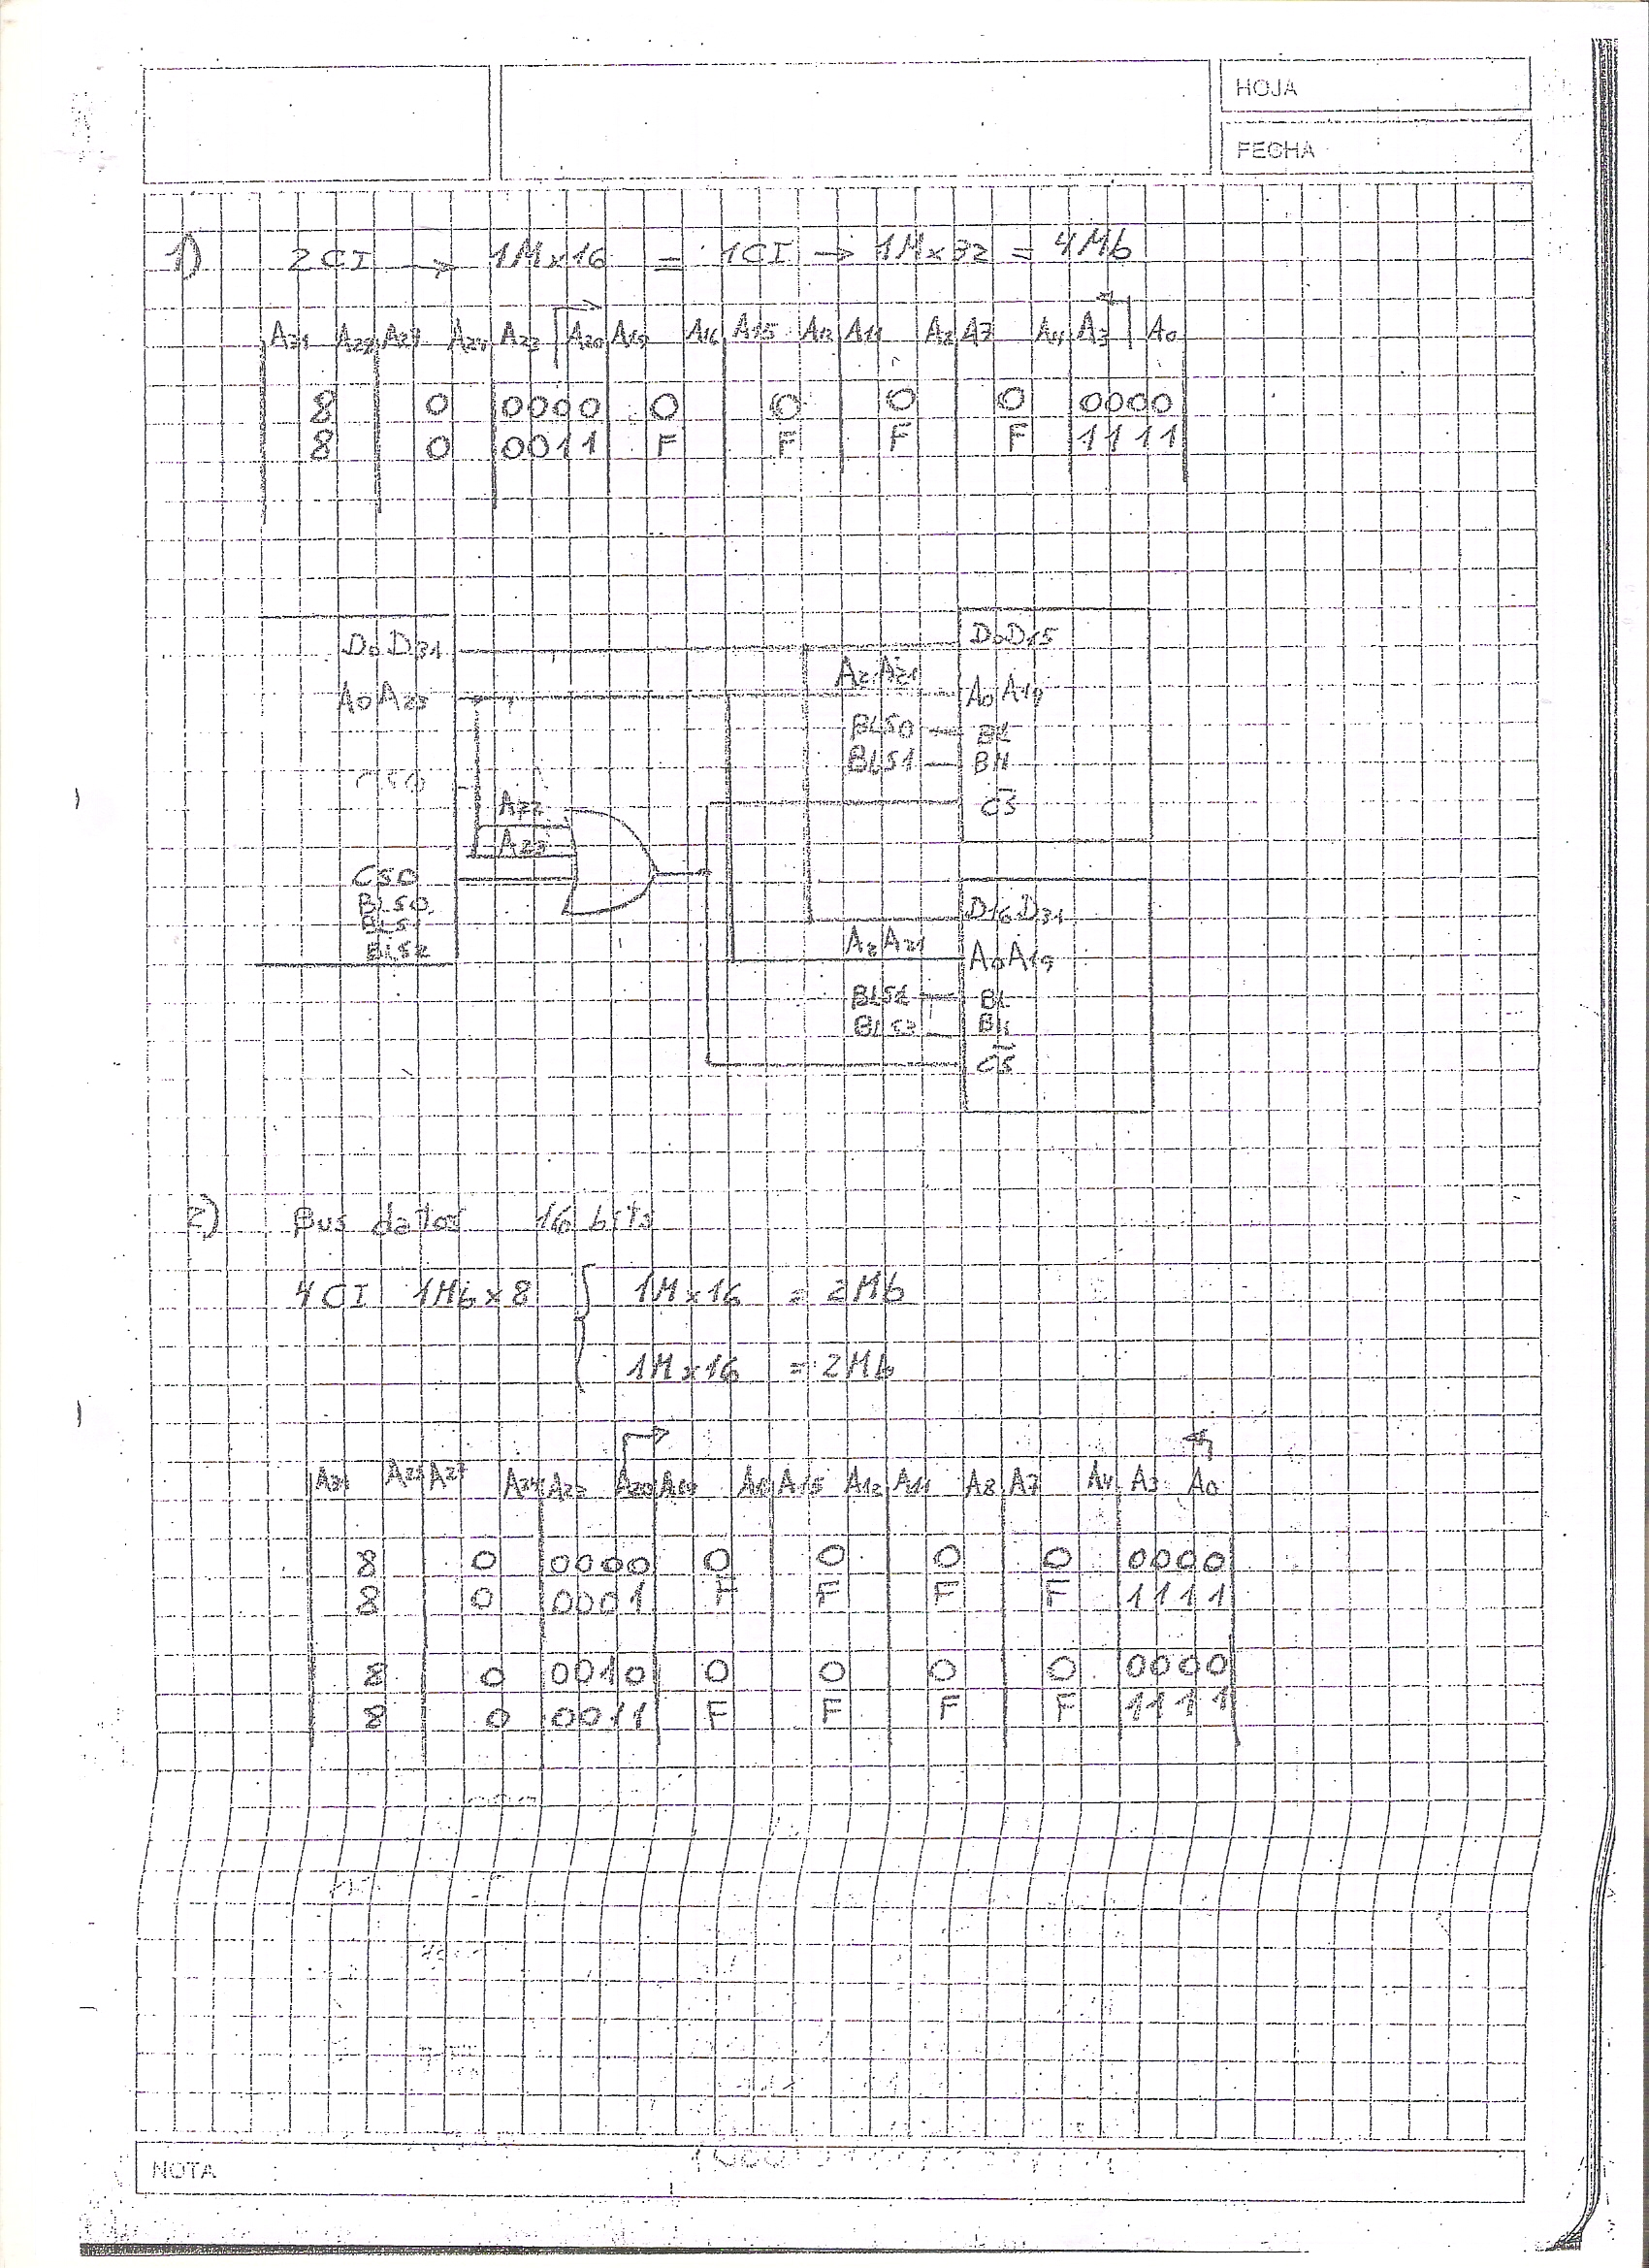 HOJA
FECHA
1) 2CI → 1Mx16 = 1CI → 1Mx32 = 4Mb
A31 A28 A27 A24 A23 A20 A19 A16 A15 A12 A11 A8 A7 A4 A3 A0
8 0 0000 0 0 0 0 0000
8 0 0011 F F F F 1111
D0D31
D0D15
A2A21
A0A23
A0A19
BLS0 BL
BLS1 BH
CS0
A22
CS
A23
CS0
BLS0
BLS1
BLS2
D16D31
A2A21
A0A19
BLS2 BL
BLS3 BH
CS
2) Bus datos 16 bits
4CI 1Mbx8 { 1Mx16 = 2Mb
1Mx16 = 2Mb
A31 A28 A27 A24 A23 A20 A19 A16 A15 A12 A11 A8 A7 A4 A3 A0
8 0 0000 0 0 0 0 0000
8 0 0001 F F F F 1111
8 0 0010 0 0 0 0 0000
8 0 0011 F F F F 1111
NOTA